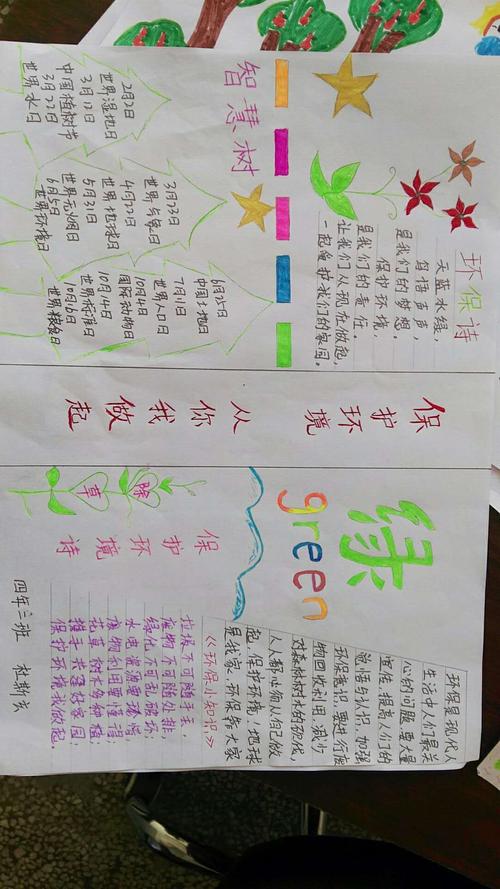 环保诗
天蓝水绿,
鸟语声声,
是我们的梦想。
保护环境,
是我们的责任。
让我们从现在做起,
一起爱护我们的家园。
智慧树
2月2日
世界湿地日
3月12日
中国植树节
3月22日
世界水日
3月23日
世界气象日
4月22日
世界地球日
5月31日
世界无烟日
6月5日
世界环境日
6月25日
中国土地日
7月11日
世界人口日
10月4日
国际动物日
10月14日
世界标准日
10月16日
世界粮食日
保护环境
从你我做起
绿
green
环保是现代人
生活中人们最关
心的问题,要大量
宣传,提高人们的
认识,加强
环保意识,要进行废
物回收利用,减少
对森林树木的砍伐,
人人都必须从自己做
起,保护环境!地球
是我家,环保靠大家
《环保小知识》
保护环境诗
除草
垃圾不可随手丢,
废物不可随处排,
绿化不可乱破坏,
水电资源要珍惜,
废物利用要懂得,
花草树木多种植,
携手共建好家园,
保护环境我做起。
四年三班 杜斯玄